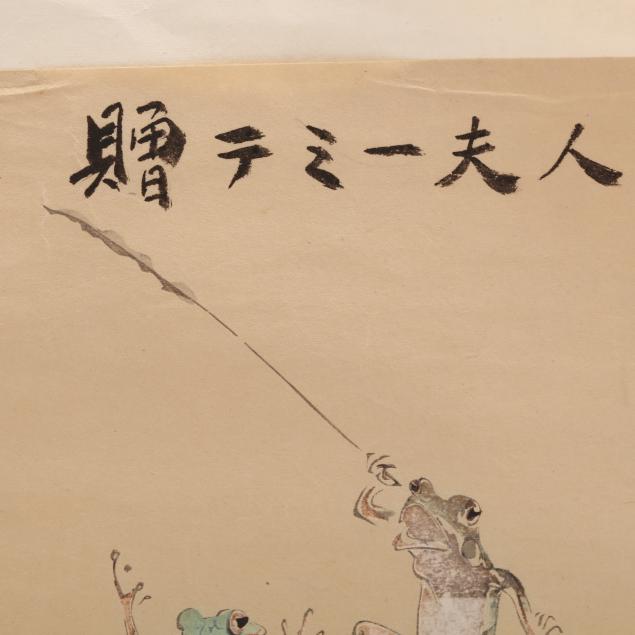 贈テミー夫人